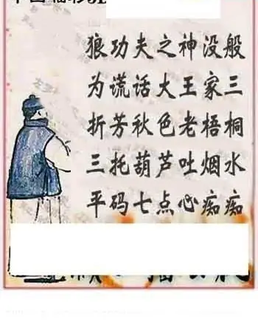 狼功夫之神没般
为谎话大王家三
折芳秋色老梧桐
三托葫芦吐烟水
平码七点心痴痴